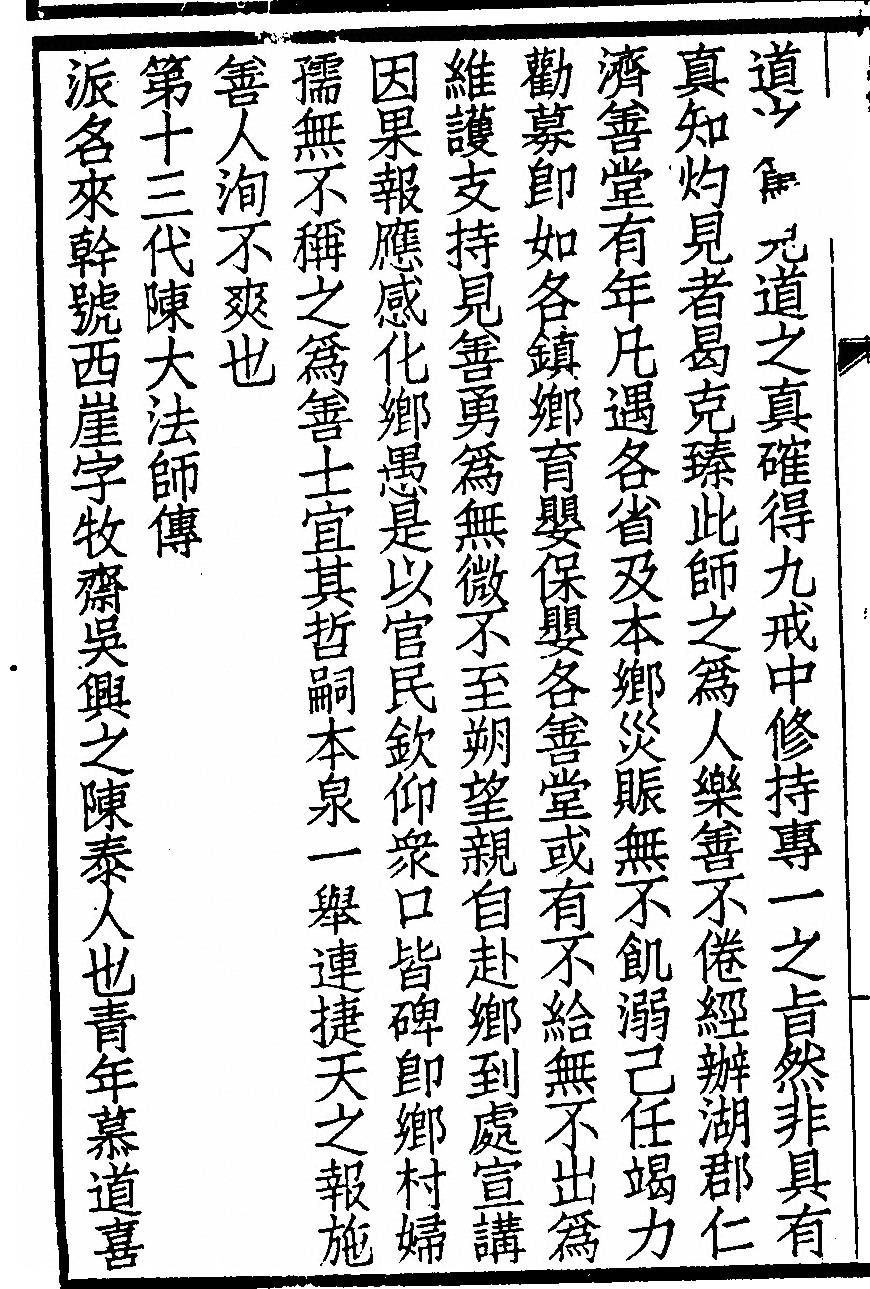 道之真確得九戒中修持專一之旨然非具有
真知灼見者曷克臻此師之爲人樂善不倦經辦湖郡仁
濟善堂有年凡遇各省及本鄉災賑無不飢溺己任竭力
勸募卽如各鎮鄉育嬰保嬰各善堂或有不給無不出爲
維護支持見善勇爲無微不至朔望親自赴鄉到處宣講
因果報應感化鄉愚是以官民欽仰衆口皆碑卽鄉村婦
孺無不稱之爲善士宜其哲嗣本泉一舉連捷天之報施
善人洵不爽也
第十三代陳大法師傳
派名來幹號西崖字牧齋吳興之陳泰人也青年慕道喜